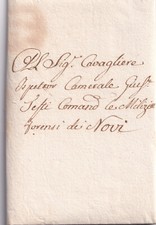 Al Sigr. Cavagliere
Ispettor Camerale Giuse.
Testi Comand. le Milizie
forensi di Novi